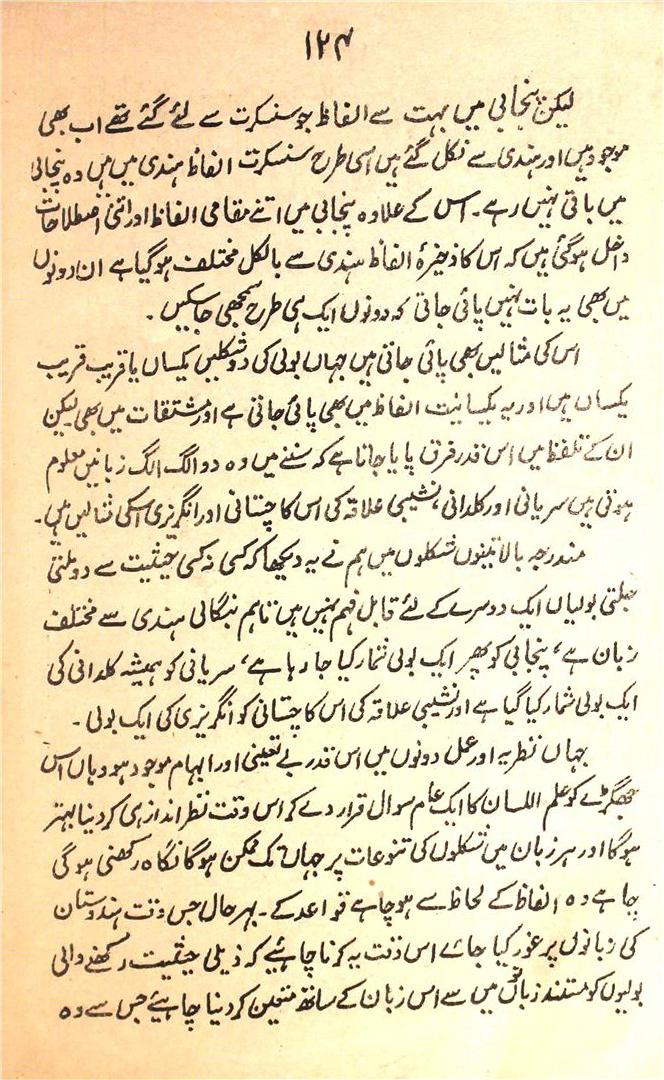 ۱۲۴
لیکن پنجابی میں بہت سے الفاظ جو سنسکرت سے لئے گئے تھے اب بھی
موجود ہیں اور ہندی سے نکل گئے ہیں اسی طرح سنسکرت الفاظ ہندی میں ہیں وہ پنجابی
میں باقی نہیں رہے۔ اس کے علاوہ پنجابی میں اتنے مقامی الفاظ اور اتنی اصطلاحات
داخل ہو گئی ہیں کہ اس کا ذخیرۂ الفاظ ہندی سے بالکل مختلف ہو گیا ہے ان دونوں
میں بھی یہ بات نہیں پائی جاتی کہ دونوں ایک ہی طرح سمجھی جا سکیں۔
اس کی مثالیں بھی پائی جاتی ہیں جہاں بولی کی دو شکلیں یکساں یا قریب قریب
یکساں ہیں اور یہ یکسانیت الفاظ میں بھی پائی جاتی ہے اور مشتقات میں بھی لیکن
ان کے تلفظ میں اس قدر فرق پایا جاتا ہے کہ سننے میں وہ دو الگ الگ زبانیں معلوم
ہوتی ہیں سریانی اور کلدانی، نشیبی علاقہ کی اس کاچستانی اور انگریزی اسکی مثالیں ہیں۔
مندرجہ بالا تینوں شکلوں میں ہم نے یہ دیکھا کہ کسی نہ کسی حیثیت سے دو ملتی
جلتی بولیاں ایک دوسرے کے لئے قابل فہم نہیں ہیں تاہم بنگالی ہندی سے مختلف
زبان ہے، پنجابی کو پھر ایک بولی شمار کیا جا رہا ہے، سریانی کو ہمیشہ کلدانی کی
ایک بولی شمار کیا گیا ہے اور نشیبی علاقہ کی اس کاچستانی کو انگریزی کی ایک بولی۔
جہاں نظریہ اور عمل دونوں میں اس قدر بے تعینی اور ابہام موجود ہو وہاں اس
جھگڑے کو علم اللسان کا ایک عام سوال قرار دے کر اس وقت نظر انداز ہی کر دینا بہتر
ہوگا اور ہر زبان میں شکلوں کی تنوعات پر جہاں تک ممکن ہوگا نگاہ رکھنی ہوگی
چاہے وہ الفاظ کے لحاظ سے ہو چاہے قواعد کے۔ بہر حال جس وقت ہندوستان
کی زبانوں پر غور کیا جائے اس وقت یہ کرنا چاہئیے کہ ذیلی حیثیت رکھنے والی
بولیوں کو مستند زبانوں میں سے اس زبان کے ساتھ متعین کر دینا چاہئیے جس سے وہ